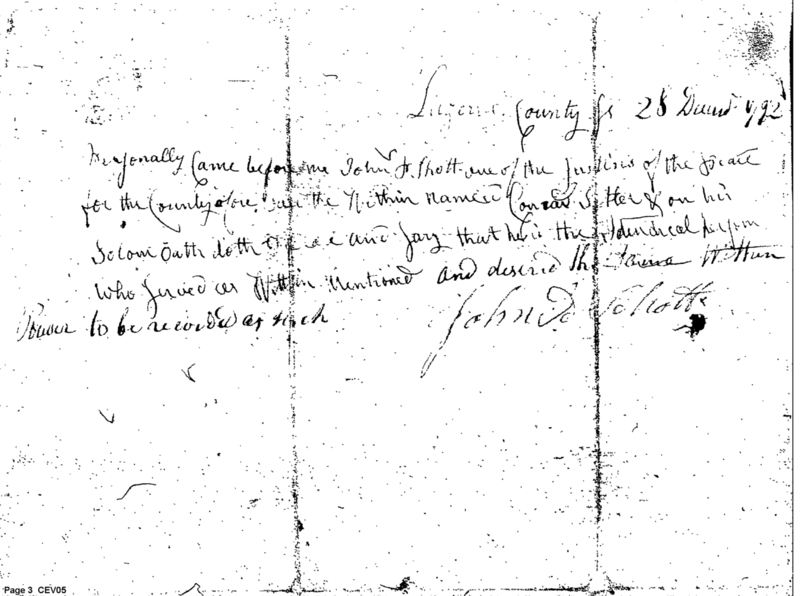 Luzerne County Ss 28 Decemr 1792
Personally Came before me John P. Shott one of the Justices of the peace
for the County afore said the Within Named Conrad & on his
Solom Oath doth and Say that he is the Identical person
Who Served as Within Mentioned and desired the Within
Power to be recorded as such
John P. Schott
Page 3 CEV05